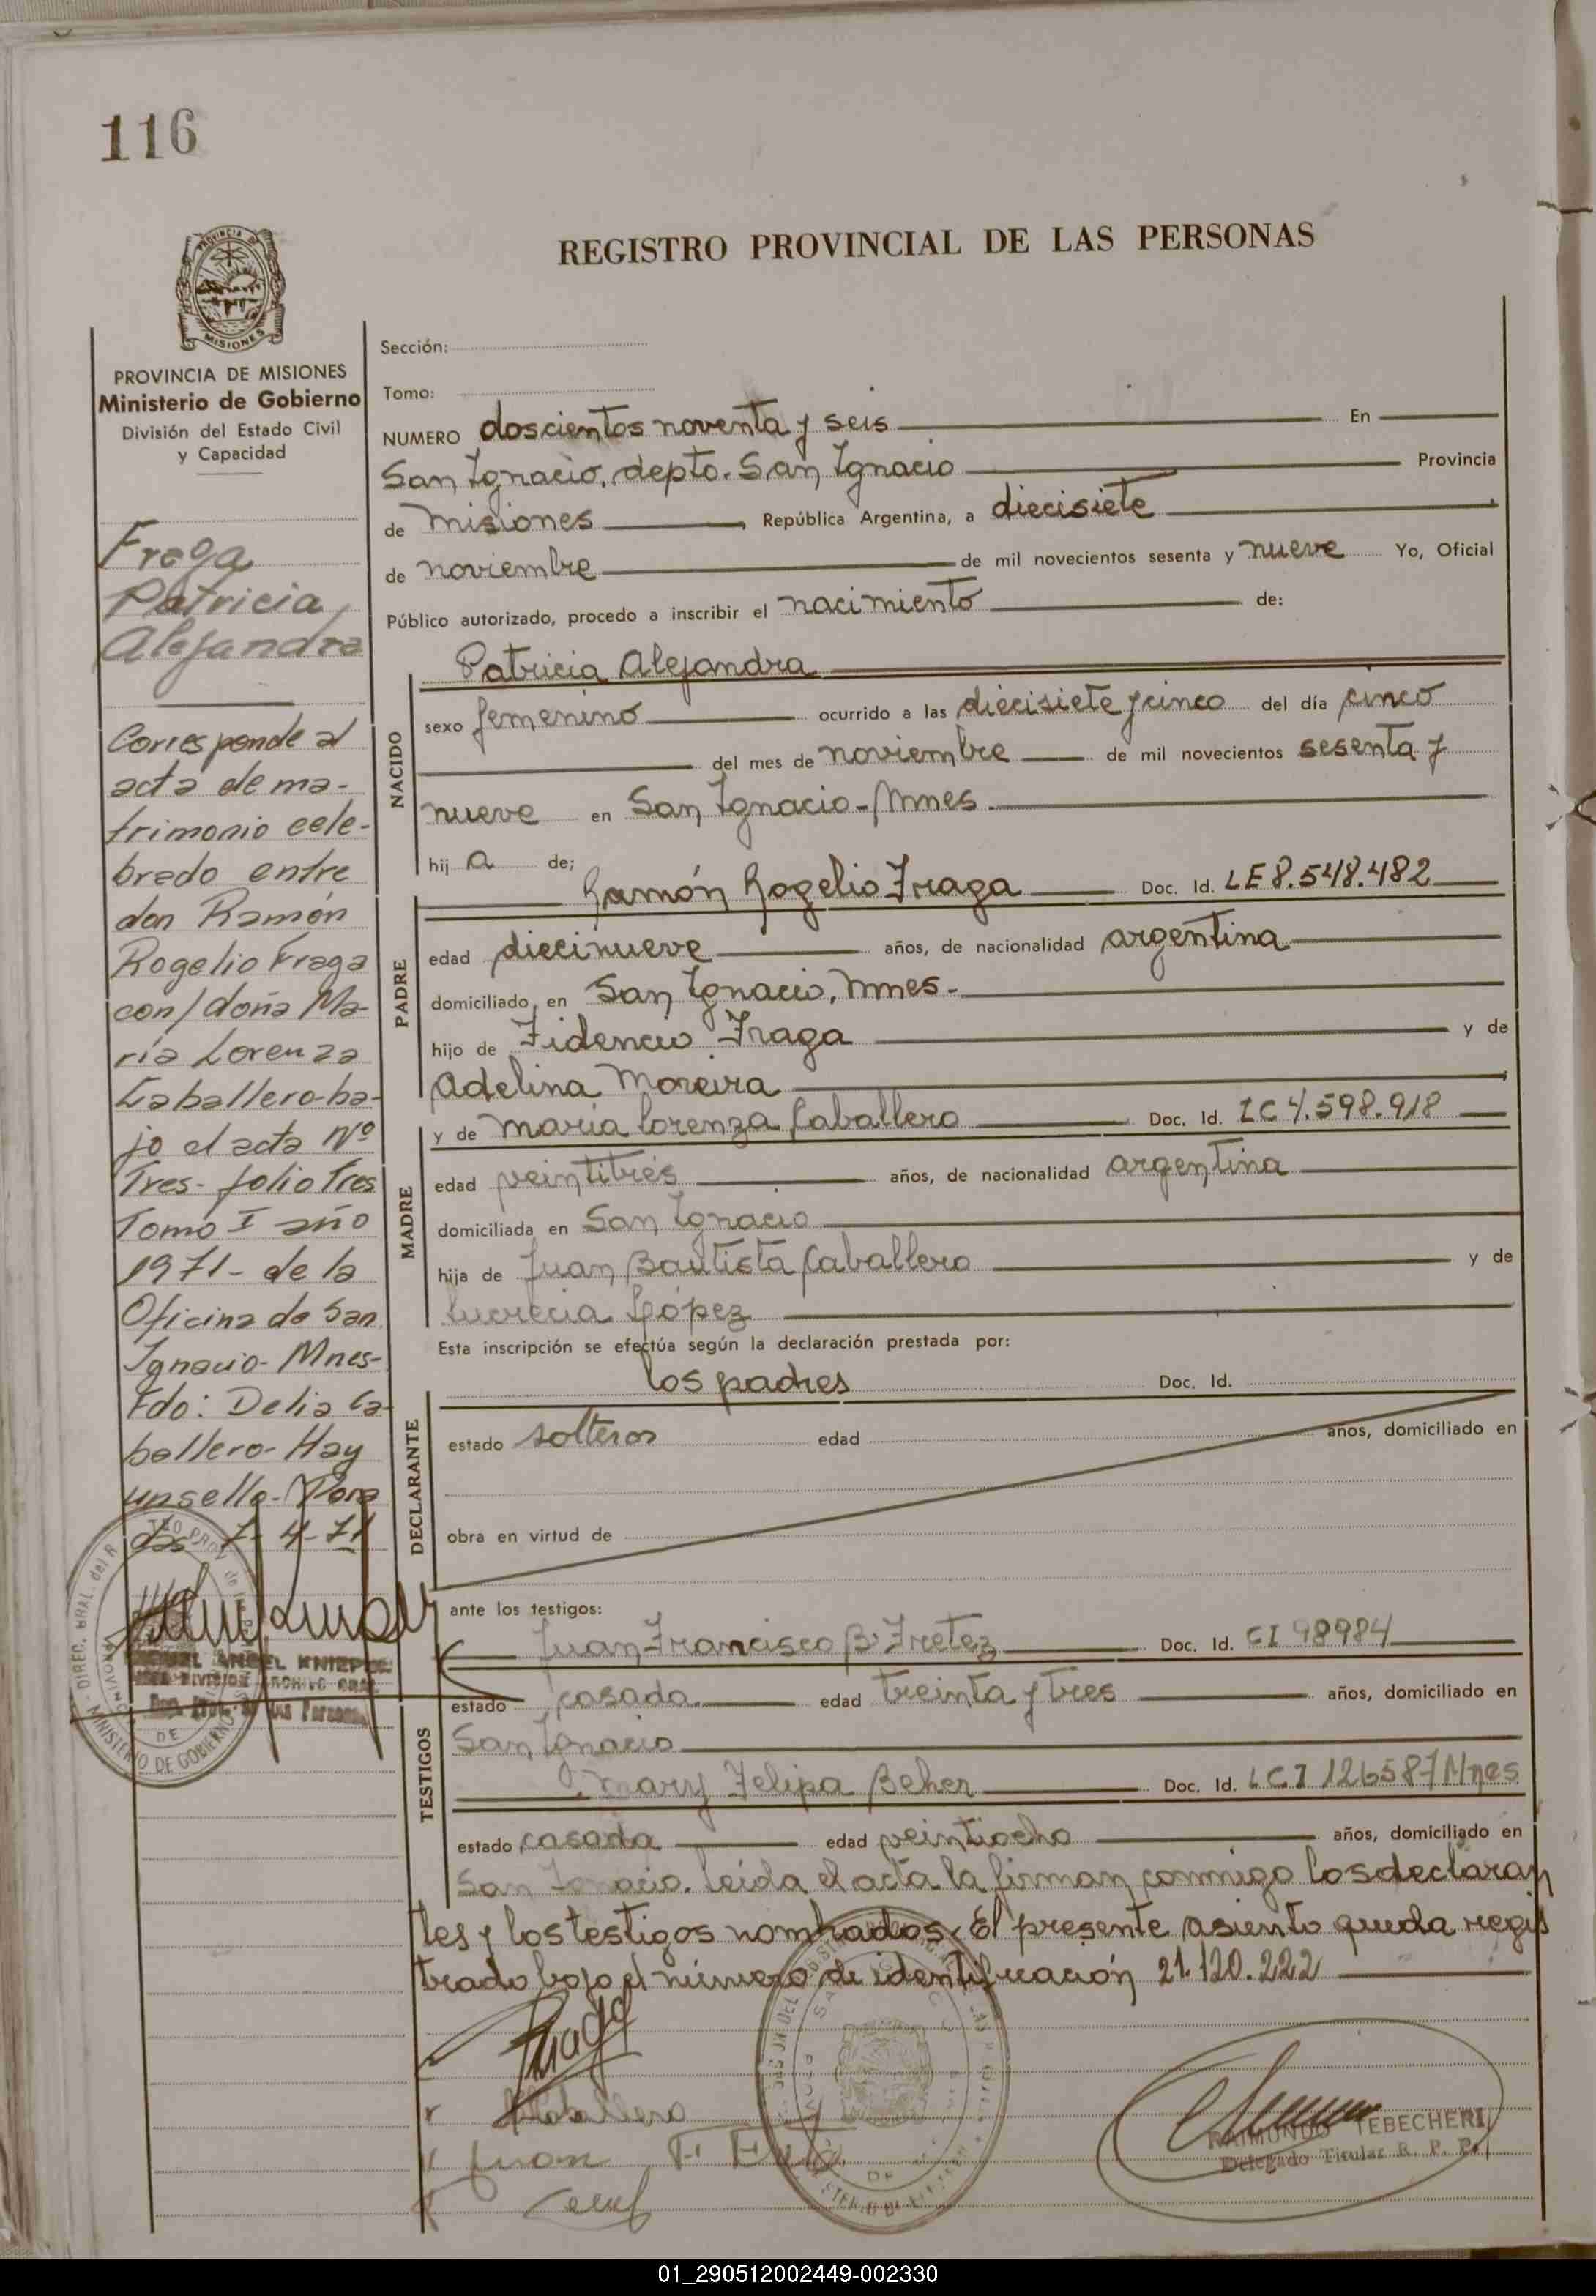 116
REGISTRO PROVINCIAL DE LAS PERSONAS
MISIONES
PROVINCIA DE MISIONES
Ministerio de Gobierno
División del Estado Civil
y Capacidad
Fraga
Patricia
Alejandra
Corresponde al
acta de ma-
trimonio cele-
brado entre
don Ramón
Rogelio Fraga
con/doña Ma-
ría Lorenza
Caballero-ba-
jo el acta Nº
Tres-folio Tres
Tomo I año
1971-de la
Oficina de San
Ignacio-Mnes-
Fdo: Delia Ca-
ballero-Hay
un sello-Posa
das 7-4-71
Sección:
Tomo:
NUMERO doscientos noventa y seis En
San Ignacio, depto. San Ignacio Provincia
de Misiones, República Argentina, a diecisiete
de noviembre de mil novecientos sesenta y nueve Yo, Oficial
Público autorizado, procedo a inscribir el nacimiento de:
NACIDO
Patricia Alejandra
sexo femenino ocurrido a las diecisiete y cinco del día cinco
del mes de noviembre de mil novecientos sesenta y
nueve en San Ignacio-Mnes.
hij a de;
PADRE
Ramón Rogelio Fraga Doc. Id. LE 8.548.482
edad diecinueve años, de nacionalidad argentina
domiciliado en San Ignacio, Mnes-
hijo de Fidencio Fraga y de
Adelina Moreira
MADRE
y de María Lorenza Caballero Doc. Id. LC 4.598.918
edad veintitrés años, de nacionalidad argentina
domiciliada en San Ignacio
hija de Juan Bautista Caballero y de
Lucrecia López
Esta inscripción se efectúa según la declaración prestada por:
DECLARANTE
los padres Doc. Id.
estado solteros edad años, domiciliado en
obra en virtud de
TESTIGOS
ante los testigos:
Juan Francisco B. Fretez Doc. Id. CI 98984
estado casado edad treinta y tres años, domiciliado en
San Ignacio
Mary Felipa Beher Doc. Id. LCI 126587 Mnes
estado casada edad veintiocho años, domiciliado en
San Ignacio. Leída el acta la firman conmigo los declaran
tes y los testigos nombrados. El presente asiento queda regis
trado bajo el número de identificación 21.120.222
Fraga
Caballero
Juan F
RAIMUNDO TEBECHERI
Delegado Titular R. P. P.
01_290512002449-002330